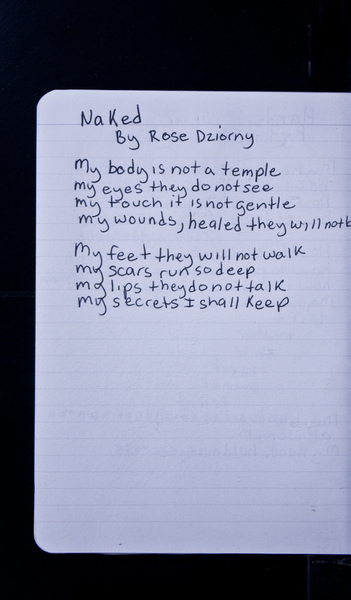 Naked
By Rose Dziorny
My body is not a temple
my eyes they do not see
my touch it is not gentle
my wounds, healed they will not b
My feet they will not walk
my scars run so deep
my lips they do not talk
my secrets I shall keep